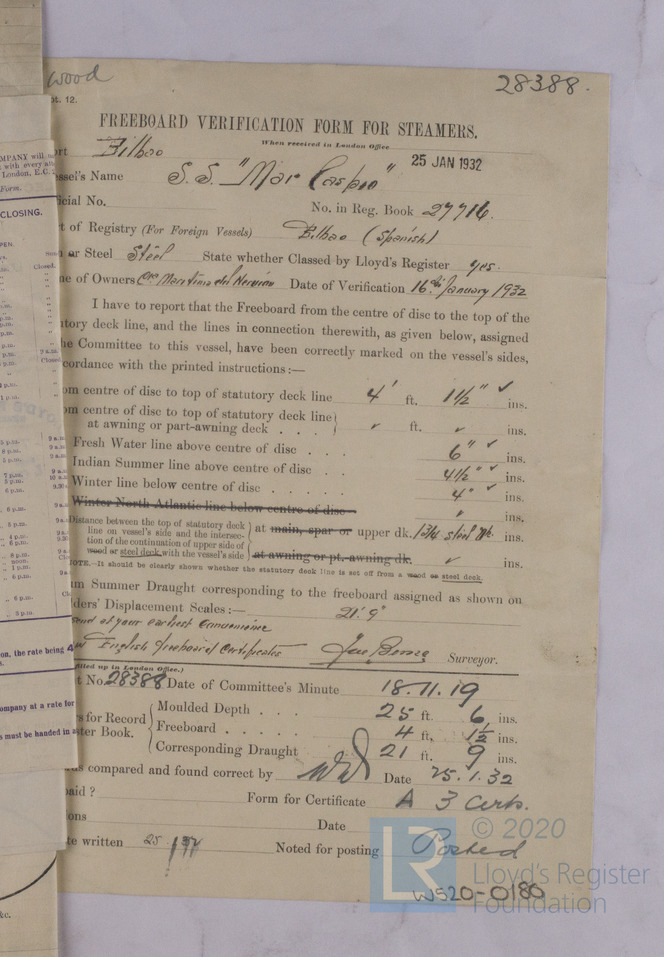 wood
28388.
pt. 12.
FREEBOARD VERIFICATION FORM FOR STEAMERS.
When received in London Office
ort Bilbao
25 JAN 1932
essel's Name S.S. "Mar Caspio"
icial No. No. in Reg. Book 27716.
t of Registry (For Foreign Vessels) Bilbao (Spanish)
or Steel Steel State whether Classed by Lloyd's Register yes.
me of Owners Cia Maritima del Nervion Date of Verification 16th January 1932
I have to report that the Freeboard from the centre of disc to the top of the
utory deck line, and the lines in connection therewith, as given below, assigned
he Committee to this vessel, have been correctly marked on the vessel's sides,
cordance with the printed instructions:—
om centre of disc to top of statutory deck line 4' ft. 1½" ✓ ins.
om centre of disc to top of statutory deck line
at awning or part-awning deck . . . ✓ ft. ✓ ins.
Fresh Water line above centre of disc . . . 6" ✓ ins.
Indian Summer line above centre of disc . . 4½" ✓ ins.
Winter line below centre of disc . . . . . 4" ✓ ins.
Winter North Atlantic line below centre of disc " ins.
Distance between the top of statutory deck
line on vessel's side and the intersec-
tion of the continuation of upper side of
wood or steel deck with the vessel's side
at main, spar or upper dk. steel ins.
at awning or pt.-awning dk. ✓ ins.
NOTE.—It should be clearly shown whether the statutory deck line is set off from a wood or steel deck.
um Summer Draught corresponding to the freeboard assigned as shown on
ders' Displacement Scales:— 21' 9"
send at your earliest convenience
English freeboard Certificates
Surveyor.
filled up in London Office.)
t No. 28388 Date of Committee's Minute 18.11.19
s for Record
ter Book.
Moulded Depth . . . 25 ft. 6 ins.
Freeboard . . . . . 4 ft. 1½ ins.
Corresponding Draught 21 ft. 9 ins.
as compared and found correct by Date 25.1.32
paid ? Form for Certificate A 3 Certs.
ons Date
te written 25 1 32 Noted for posting Posted
W520-0180
LR
© 2020
Lloyd's Register
Foundation
MPANY will
with every
London, E.C.
Form.
CLOSING.
PEN.
on, the rate being 4
ompany at a rate for
s must be handed in a
&c.